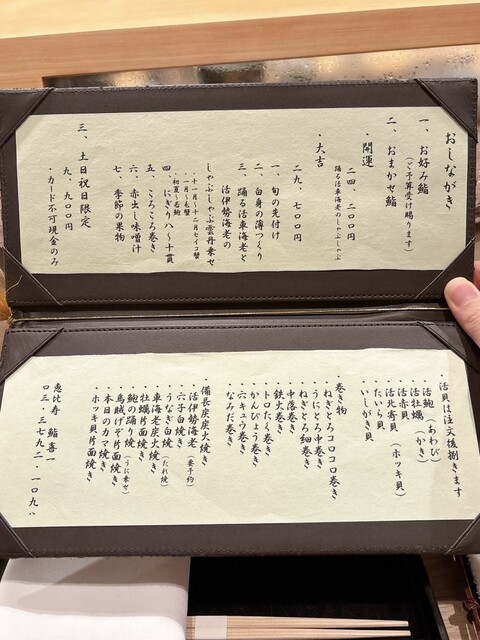 おしながき
一、お好み鮨
（ご予算受け賜ります）
二、おまかせ鮨
・開運
二四、二〇〇円
踊る活車海老のしゃぶしゃぶ
・大吉
二九、七〇〇円
一、旬の先付け
二、白身の薄つくり
三、踊る活車海老と
活伊勢海老の
しゃぶしゃぶ雲丹乗せ
十一月～十二月セイコ蟹
一月～毛蟹
初夏～岩鮑
四、にぎり八～十貫
五、ころころ巻き
六、赤出し味噌汁
七、季節の果物
三、土日祝日限定
九、九〇〇円
・カード不可現金のみ
・活貝は注文後捌きます
活鮑（あわび）
活牡蠣（かき）
活赤貝
活北寄貝（ホッキ貝）
・たいら貝
・いしがき貝
・巻き物
ねぎとろコロコロ巻き
うにとろ中巻き
ねぎとろ細巻き
中落巻き
鉄火巻き
トロたく巻き
かんぴょう巻き
六キュウ巻き
なみだ巻き
備長炭炭火焼き
・活伊勢海老（要予約）
・六子白焼き
うなぎ白焼（たれ焼）
車海老炭火焼き
牡蠣片面焼き
鮑の踊り焼（うに乗せ）
烏賊げそ片面焼き
・本日のカマ焼き
・ホッキ貝片面焼き
恵比寿 鮨喜一
〇三・三七九二・一〇九